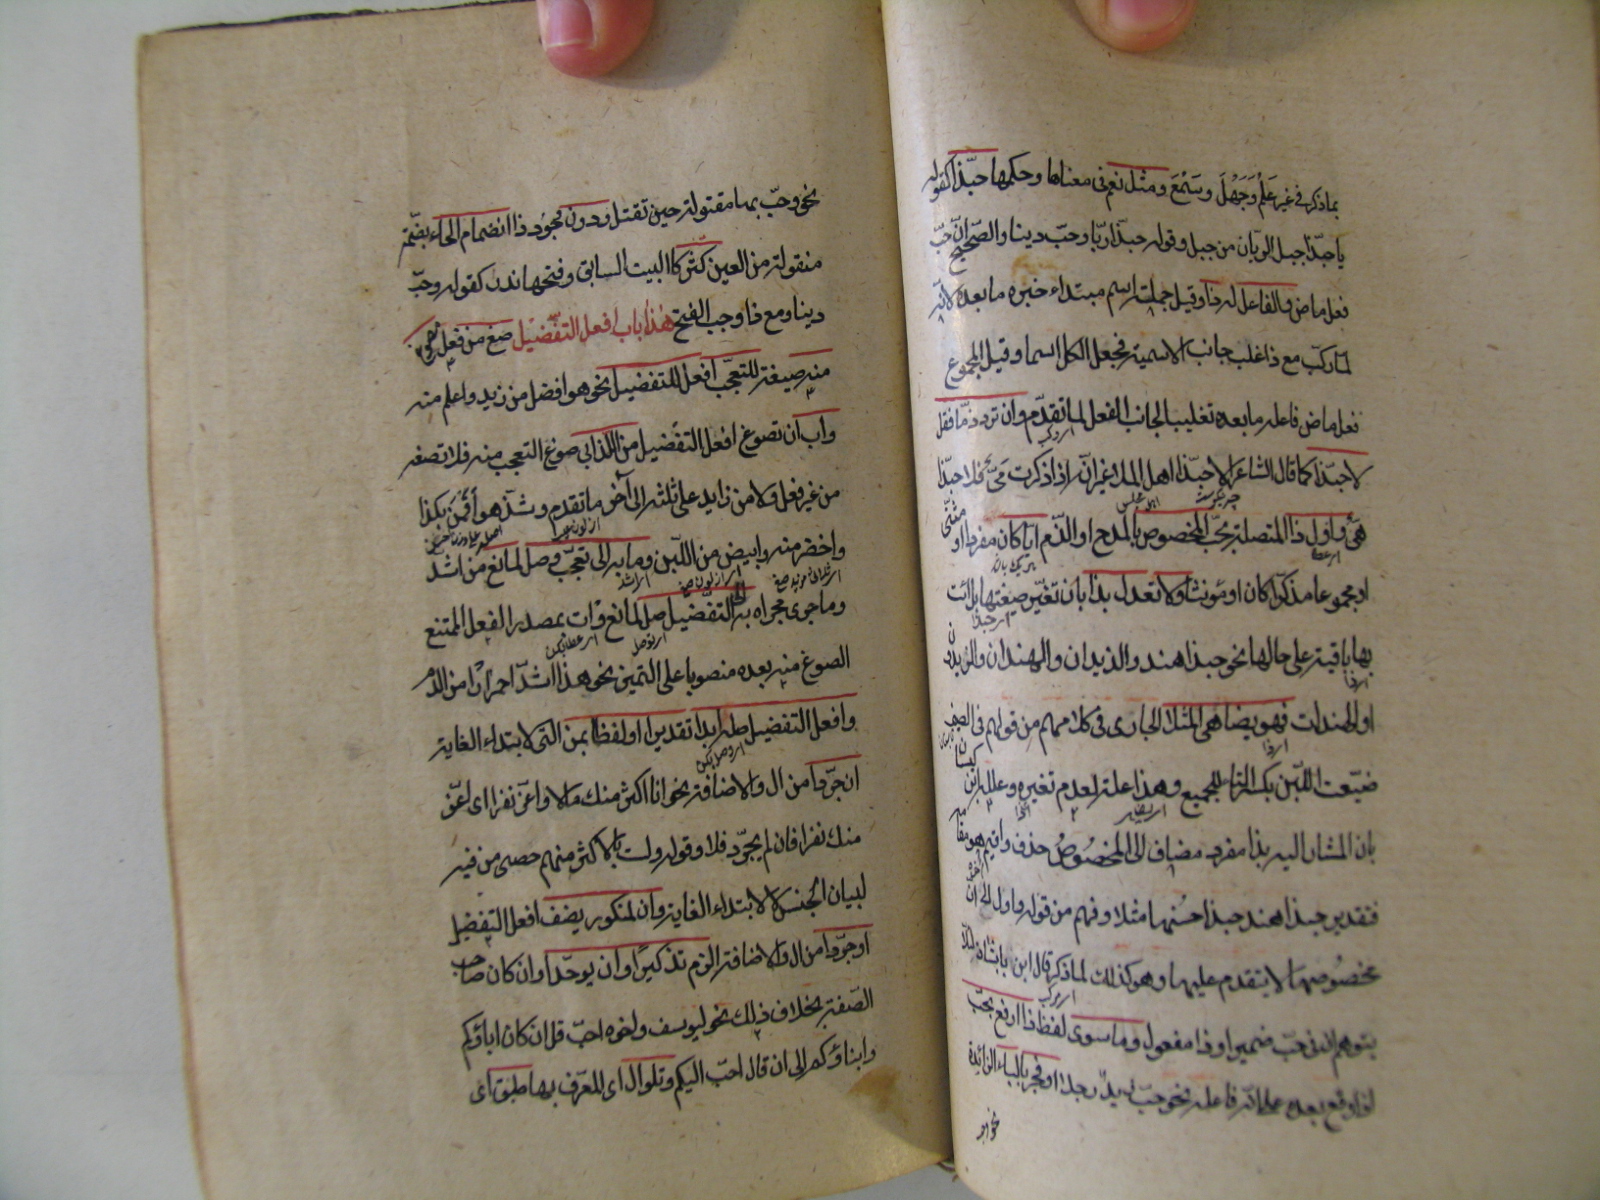 بما ذكر في غير عَلِمَ وَجَهِلَ وسَمِعَ ومثل نعم في معناها وحكمها حبّذا كقوله
يا حبّذا جبل الريّان من جبل وقوله حبذا ربّا وحبّ دينا والصحيح انّ حبّ
فعل ماض والفاعل له ذا وقيل جملته اسم مبتداء خبره ما بعده لانّه
لما ركّب مع ذا غلب جانب الاسمية فجعل الكل اسما وقيل المجموع
فعل ماض فاعله ما بعده تغليبا لجانب الفعل لما تقدّم وان ترد ذمّا فقل
لا حبّذا كما قال الشاعر الا حبّذا اهل الملا غير انّه اذا ذكرت ميّ فلا حبّذا
هي واول ذا المتصلة بحبّ المخصوص بالمدح او الذّم ايّا كان مفردا او مثنّى
او مجموعا مذكّرا كان او مؤنثا ولا تعدل بذا بان تغيّر صيغتها بل ائت
بها باقية على حالها نحو حبذا هند والزيدان والهندان والزيدون
او الهندات فهو يضاهي المثلا الجارى في كلامهم من قولهم في الصيف
ضيّعت اللبن بكسر التاء للجميع وهذا علة لعدم تغيره وعلل ابن كيسان
بان المشار اليه بذا مفرد مضاف الى المخصوص حذف واقيم هو مقامه
فتقدير حبذا هند حبذا حسنها مثلا وفهم من قوله واول الى آخره ان
مخصوصها لا يتقدم عليها وهو كذلك لما ذكر قال ابن بابشاذ لئلا
يتوهم ان في حبّ ضميرا وذا مفعول وما سوى لفظ ذا ارفع بحبّ
اذا وقع بعده على انّه فاعله نحو حبّ زيد رجلا او فجر بالباء الزائدة
نحو وحبّ بها مقتولة حين تقتل ودون وجود ذا انضمام الحاء بضمّة
منقولة من العين كثر كما البيت السابق وفتحها ندر كقوله وحبّ
دينا ومع ذا وجب الفتح هذا باب افعل التفضيل صغ من فعل
منه صيغة للتعجّب افعل للتفضيل نحو هو افضل من زيد واعلم منه
وأب ان تصوغ افعل التفضيل من اللذ ابي صوغ التعجب منه فلا تصغه
من غير فعل ولا من زايد على ثلثة الى آخر ما تقدم وشذ هو أقمن بكذا
واخصر منه وابيض من اللبن وما به الى تعجّب وصل لمانع من اشدّ
وما جرى مجراه به الى التفضيل صل لمانع وات بمصدر الفعل الممتنع
الصوغ منه بعده منصوبا على التميز نحو هذا اشدّ احمرارا من الدّم
وافعل التفضيل صله ابدا تقديرا او لفظا بمن التي لابتداء الغاية
ان جرّدا من ال والاضافة نحو انا اكثر منك مالا واعزّ نفرا اى اعزّ
منك نفرا فان لم يجرّد فلا وقوله ولست بالاكثر منهم حصى من فيه
لبيان الجنس لا لابتداء الغاية وان لمنكور يضف افعل التفضيل
او جرّدا من ال والاضافة الزم تذكيرا وان يوحّدا وان كان صاحب
الصّفة بخلاف ذلك نحو ليوسف واخوه احبّ قل ان كان اباؤكم
وابناؤكم الى ان قال احبّ اليكم وتلو ال اى للمعرّف بها طبق اى